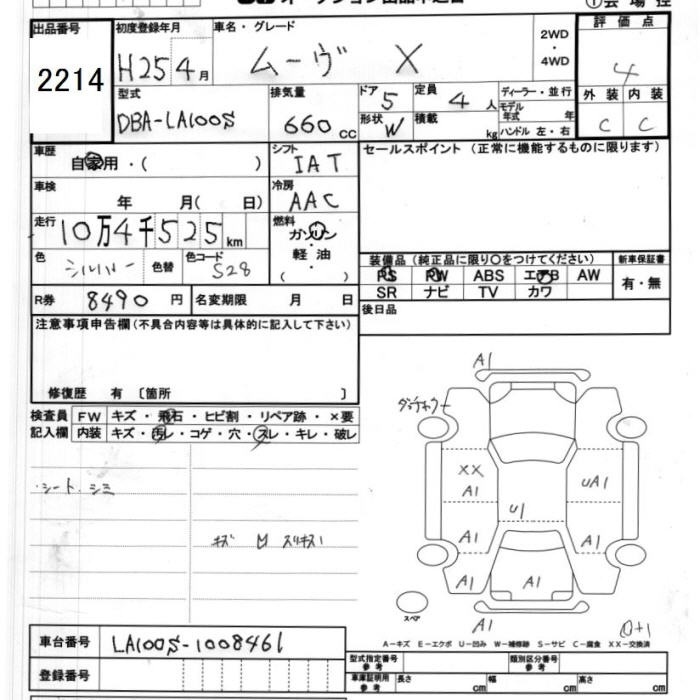 出品番号
2214
初度登録年月
H25 4月
車名・グレード
ムーヴ X
2WD
・
4WD
評価点
4
外装 内装
C C
型式
DBA-LA100S
排気量
660 cc
ドア 5
定員 4 人
形状 W
積載 kg
ディーラー・並行
モデル年式 年
ハンドル 左・右
車歴
自家用・( )
シフト
IAT
セールスポイント (正常に機能するものに限ります)
車検
年 月( 日)
冷房
AAC
走行
10万4千525 km
燃料
ガソリン
・
軽油
( )
色 シルバー 色替 色コード S28
装備品 (純正品に限り○をつけてください)
新車保証書
PS PW ABS エアB AW
SR ナビ TV カワ
有・無
R券 8490 円 名変期限 月 日
後日品
注意事項申告欄 (不具合内容等は具体的に記入して下さい)
修復歴 有 〔箇所 〕
検査員
記入欄
FW キズ・飛石・ヒビ割・リペア跡・×要
内装 キズ・汚レ・コゲ・穴・スレ・キレ・破レ
・シート、シミ
A1
XX
A1
UA1
U1
A1
A1
A1
A1
A1
スペア
A1
A-キズ E-エクボ U-凹み W-補修跡 S-サビ C-腐食 XX-交換済
車台番号 LA100S-1008461
登録番号
型式指定番号
参考
類別区分番号
参考
車庫証明用
参考
長さ cm 幅 cm 高さ cm